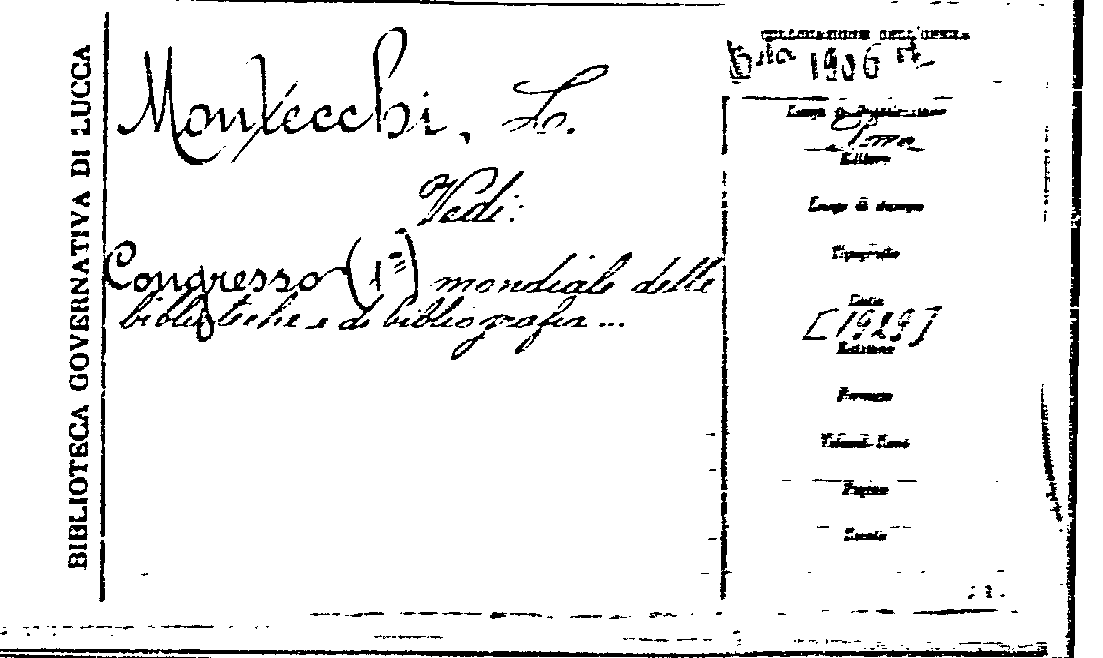 BIBLIOTECA GOVERNATIVA DI LUCCA
Montecchi, L.
Vedi:
Congresso (1º) mondiale delle
biblioteche e di bibliografia ...
COLLOCAZIONE DELL'OPERA
Bta 1906
Luogo di Pubblicazione
Roma
Editore
Luogo di stampa
Tipografo
Data
[1929]
Edizione
Formato
Volumi
Pagine